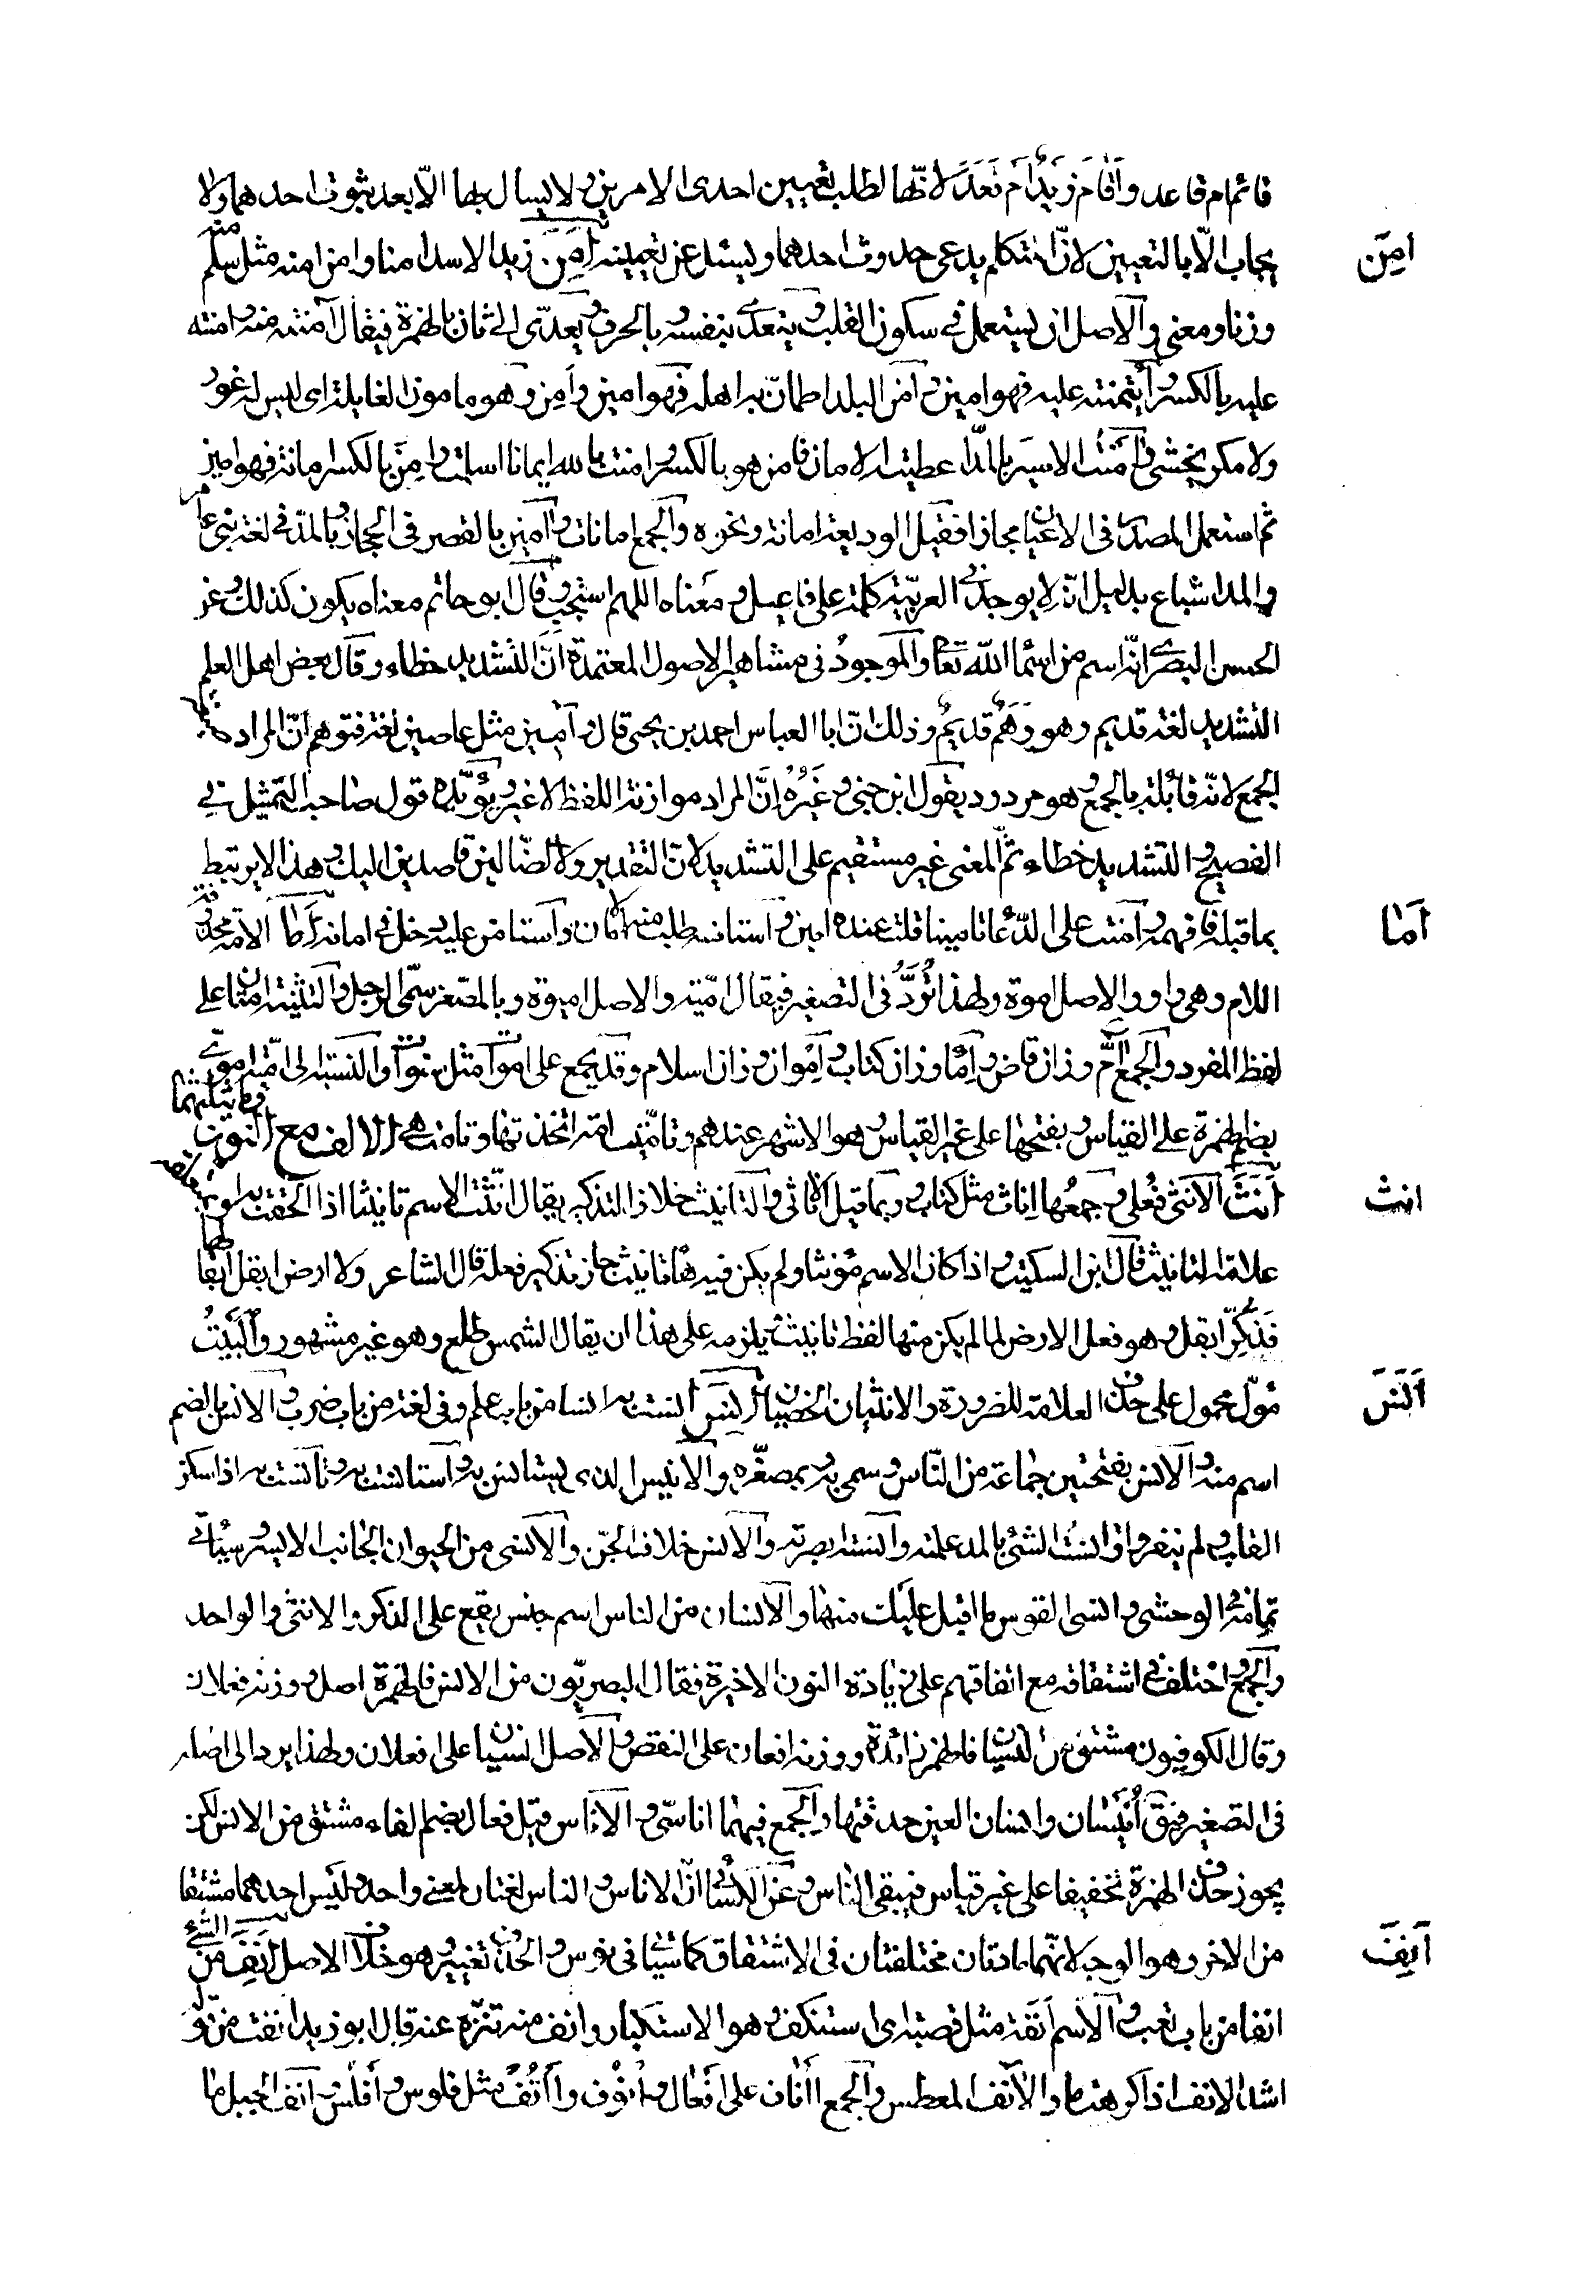 قائم ام قاعد واقام زيدٌ ام قعَدَ لانّها لطلب تعيين احدى الامرين ولا يسال بها الّا بعد ثبوت احدهما ولا
امِنَ
يجاب الّا بالتعيين لانّ المتكلم يدعى حدوث احدهما ويسئل عن تعيينه اَمِنَ زيد الاسد امنا وامن منه مثل سلم منه
وزنا ومعنى والاصل ان يستعمل في سكون القلب ويتعدى بنفسه وبالحرف ويعدّى الى ثان بالهمزة فيقال آمنته منه وامنته
عليه بالكسر وائتمنته عليه فهو امين وامن البلد اطمانّ به اهله فهو امين وآمِن وهو مامون الغايلة اى ليس له غور
ولا مكر يخشى وآمنتُ الاسير بالمدّ اعطيته الامان فامن هو بالكسر وامنت بالله ايمانا اسلمت وامِنَ بالكسر امانة فهو امين
ثم استعمل المصدر فى الاعيان مجازا فقيل الوديعة امانة ونحوه والجمع امانات وآمين بالقصر فى الحجاز وبالمدّ في لغة بنى عامر
والمد اشباع بدليل انّه لا يوجد في العربيّة كلمة على فاعيل ومعناه اللهم استجب وقال ابو حاتم معناه يكون كذلك وعن
الحسن البصرى انّه اسم من اسما الله تعا والموجودُ فى مشاهير الاصول المعتمدة انّ التشديد خطاء وقال بعض اهل العلم
التشديد لغة قديم وهو وَهَمٌ قديمٌ وذلك انّ ابا العباس احمد بن يحيى قال وآمين مثل عاصين لغة فتوهم انّ المراد صيغة
الجمع لانّه قابله بالجمع وهو مردود بقول ابن جنى وغيرُه انَّ المراد موازنة اللفظ لا غير ويُؤيّده قول صاحب التمثيل في
الفصيح والتشديد خطاء ثمّ المعنى غير مستقيم على التشديد لانّ التقدير ولا الضّالين قاصدين اليك وهذا لا يرتبط
اَمَا
بما قبله فافهمه وآمنت على الدّعا تامينا قلت عنده امين واستامنه طلب منه الامان واستامن عليه دخل في امانه اَمَا الامة محذوفة
اللام وهى واو والاصل اموة ولهذا تُرَدُّ فى التصغير فيقال اميّة والاصل اميوة وبالمصّغر سمّى الرجل والتثنية امتان على
لفظ المفرد والجمع آمٍ وزان قاض واِمَا وزان كتاب واِموان وزان اسلام وقد يجمع على اموات مثل سنوات والنسبة الى اميّة اموى
بضم الهمزة على القياس وبفتحها على غير القياس وهو الاشهر عندهم وتامّيت امة اتخذتها وتامت هى الالف مع النون وما يثلثهما
انث
اَنَثَ الانثى فُعلى وجمعُها اِناث مثل كتاب وربما قيل الاناثى والتانيث خلاف التذكير يقال انّثت الاسم تانيثا اذا الحقت به او بمتعلقه
علامة التانيث قال ابن السكيت واذا كان الاسم مؤنثا ولم يكن فيه ها تانيث جاز تذكير فعله قال الشاعر ولا ارض ابقل ابقالها
فذكّر ابقل وهو فعل الارض لما لم يكن منها لفظ تانيث ويلزمه على هذا ان يقال الشمس طلع وهو غير مشهور والبَيْتُ
اَنسَ
مؤوّل محمول على حذف العلامة للضرورة والانثيان الخصيتان اَنِسَ انست به انسا من باب علم وفى لغة من باب ضرب والانس بالضم
اسم منه والانس بفتحتين جماعة من النّاس وسمى به وبمصغّره والانيس الذى يستانس به واستانست به وتانست به اذا سكن
القلب ولم ينفر وآنست الشئ بالمد علمته وآنسته ابصرته والانس خلاف الجنّ والانسى من الحيوان الجانب الايسر وسيأتى
تمامه في الوحشى وانسى القوس ما اقبل عليك منها والانسان من الناس اسم جنس يقع على الذكر والانثى والواحد
والجمع اختلف فى اشتقاقه مع اتفاقهم على زيادة النون الاخيرة فقال البصريّون من الانس فالهمزة اصل ووزنه فعلان
وقال الكوفيون مشتق من النسيان فالهمزة زائدة ووزنه افعان على النقص والاصل انسيان على افعلان ولهذا يرد الى اصله
فى التصغير فيق اُنيسيان وانسان العين حدقتها والجمع فيهما اناسّى والاناس قيل فعال بضم الفاء مشتق من الانس لكن
يجوز حذف الهمزة تخفيفا على غير قياس فيبقى الناس وعن الكسائى انّ الاناس والناس لغتان بمعنى واحد وليس احدهما مشتقا
اَنِفَ
من الاخر وهو الوجه لانّهما مادتان مختلفتان فى الاشتقاق كما سياتى فى نوس والحذف تغيير وهو خلاف الاصل اَنِفَ من الشئ
انفا من باب تعب والاسم اَنَفَة مثل قصبة اى استنكف وهو الاستكبار وانف منه تنزه عنه قال ابو زيد انفت من قوله
اشد الانف اذا كرهت ما والاَنف المعطس والجمع آناف على اَفعال واُنوف وآنُف مثل فلوس واَفلُس وانف الجبل ما